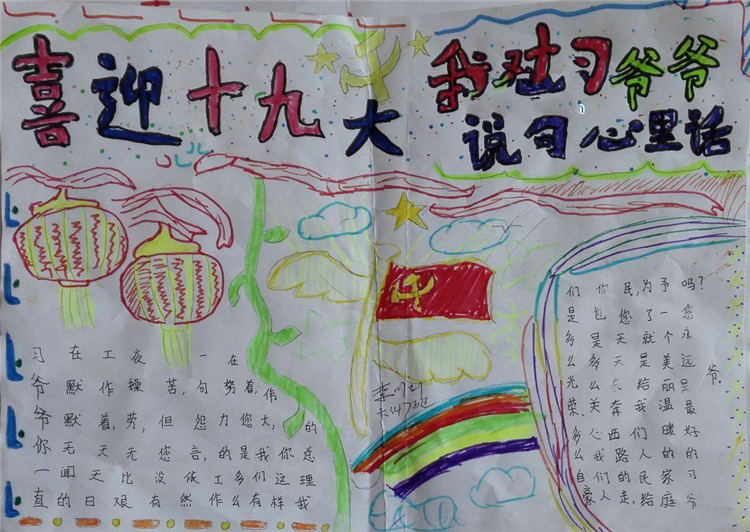 喜迎十九大
我对习爷爷
说句心里话
习爷爷你一直
在默默无闻的
工作着,天天日
夜操劳,无比艰
苦,但您没有
一句怨言,依然
在努力的工作
着,您是多么
伟大,我们有
你这样
的总理我
们是多么光荣,多么自豪
你也是多么关心我们人
民,您天天东奔西路的走,
为了就是给我们人民给
予一个美丽温暖的家庭
吗?您永远是最好的习爷
爷.